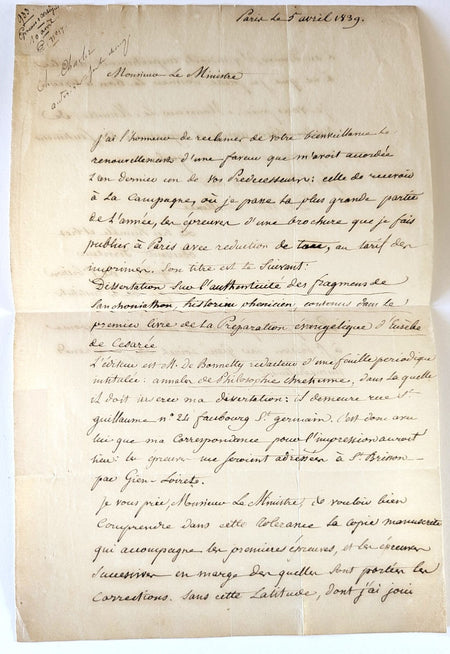 133
10 avril
Paris le 5 avril 1839.
Monsieur Le Ministre
J'ai l'honneur de reclamer de votre bienveillance le
renouvellement d'une faveur que m'avoit accordée
l'an dernier un de vos Prédecesseurs: celle de recevoir
à La Campagne, où je passe la plus grande partie
de L'année, les épreuves d'une brochure que je fais
publier à Paris avec reduction de taxe, au tarif des
imprimés. Son titre est le Suivant:
Dissertation Sur l'authenticité des fragmens de
Sanchoniathon, historien phenicien, contenus dans le
premier livre de la Préparation évangelique d'Eusèbe
de Cesarée
L'éditeur est M. de Bonnetty redacteur d'une feuille periodique
intitulée: annales de Philosophie chretienne, dans laquelle
il doit inserer ma dissertation: il demeure rue St
guillaume n° 24 faubourg St germain. C'est donc avec
lui que ma Correspondance pour l'impression auroit
lieu: les épreuves me seroient adressées à St. Brisson
par Gien-Loiret.
Je vous prie, Monsieur Le Ministre, de vouloir bien
Comprendre dans cette tolerance la copie manuscrite
qui accompagne les premieres épreuves, et les épreuves
Successives en marge desquelles sont portées les
Corrections. Sans cette Latitude, dont j'ai joui